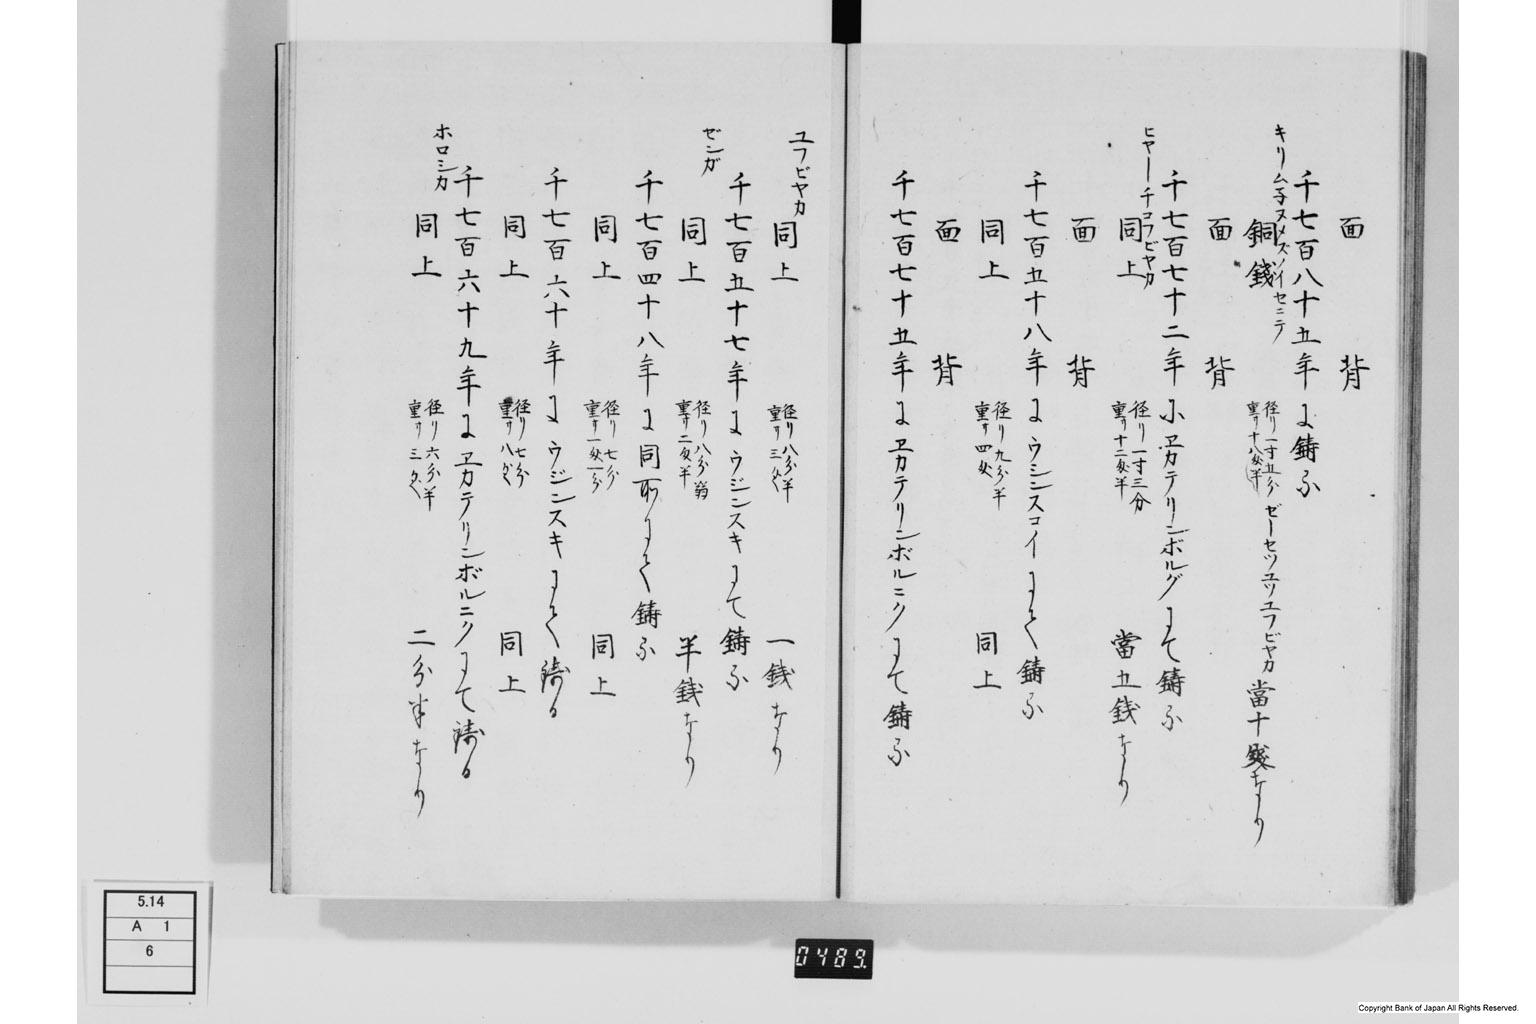 面 背
千七百八十五年に鋳ふ
キリム子ヌメズソイセニテ
銅錢 径り一寸五分 重サ十八匁半 ゼーセツユツユフビヤカ 當十錢なり
面 背
千七百七十二年にヱカテリンボルグにて鋳ふ
ヒヤーチコフビヤカ
同上 径リ一寸三分 重サ十二匁半 當五銭なり
面 背
千七百五十八年にウシンスコイにて鋳ふ
同上 径リ九分半 重サ四匁 同上
面 背
千七百七十五年にヱカテリンボルニクにて鋳ふ
ユフビヤカ
同上 径リ八分半 重サ三匁 一銭なり
千七百五十七年にウジンスキにて鋳ふ
ゼンガ
同上 径リ八分弱 重サ二匁半 半銭なり
千七百四十八年に同所にて鋳ふ
同上 径リ七分 重サ一匁一分 同上
千七百六十年にウジンスキにて鋳る
同上 径リ七分 重サ八分 同上
千七百六十九年にヱカテリンボルニクにて鋳る
ホロシカ
同上 径リ六分半 重サ三分 二分半なり
5.14
A 1
6
0489.
Copyright Bank of Japan All Rights Reserved.